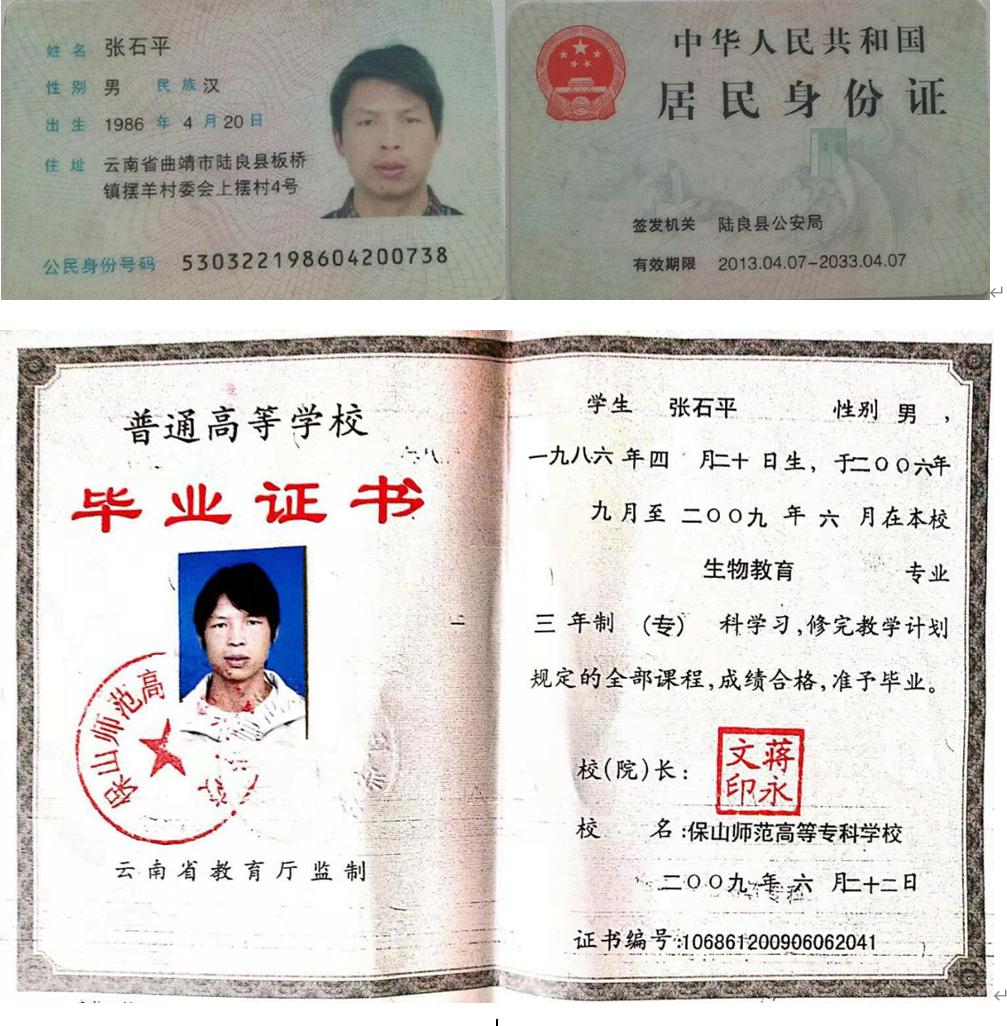 姓名 张石平
性别 男 民族 汉
出生 1986 年 4 月 20 日
住址 云南省曲靖市陆良县板桥
镇摆羊村委会上摆村4号
公民身份号码 530322198604200738
中华人民共和国
居民身份证
签发机关 陆良县公安局
有效期限 2013.04.07-2033.04.07
普通高等学校
毕业证书
保山师范高
云南省教育厅监制
学生 张石平 性别 男,
一九八六年四 月二十日生,于二〇〇六年
九月至二〇〇九年六月在本校
生物教育 专业
三年制(专)科学习,修完教学计划
规定的全部课程,成绩合格,准予毕业。
校(院)长:
蒋永文印
校 名:保山师范高等专科学校
二〇〇九年六月二十二日
证书编号:106861200906062041